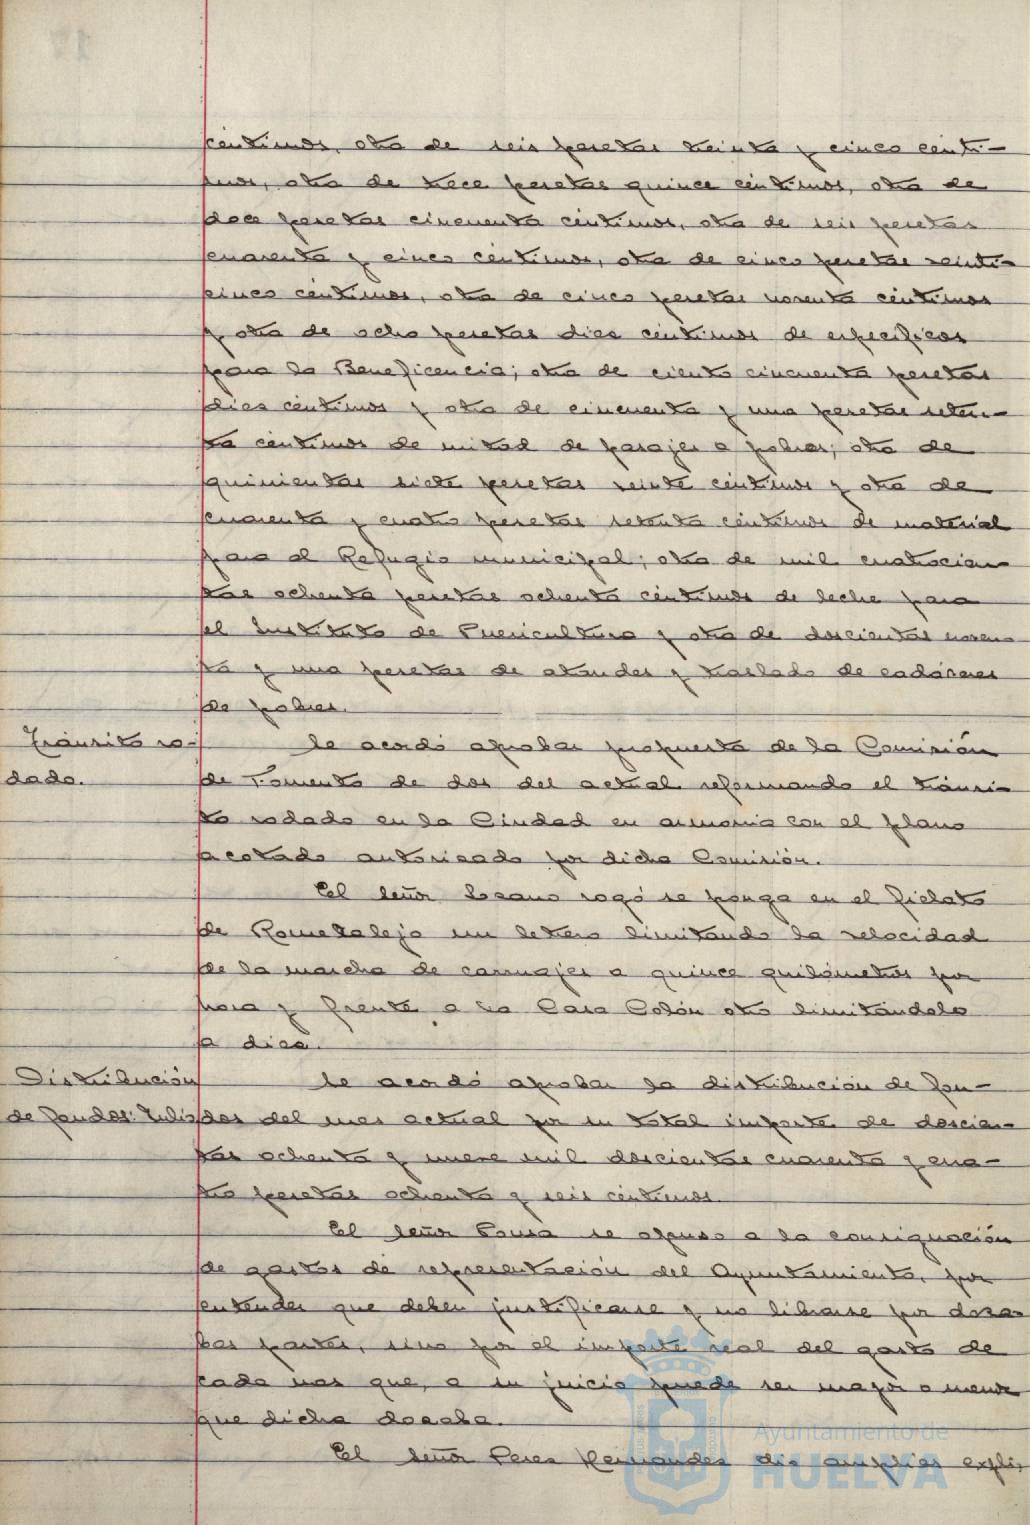 céntimos, otra de seis pesetas treinta y cinco cénti-
mos, otra de trece pesetas quince céntimos, otra de
doce pesetas cincuenta céntimos, otra de seis pesetas
cuarenta y cinco céntimos, otra de cinco pesetas veinti-
cinco céntimos, otra de cinco pesetas noventa céntimos
y otra de ocho pesetas diez céntimos de específicos
para la Beneficencia; otra de ciento cincuenta pesetas
diez céntimos y otra de cincuenta y una pesetas seten-
ta céntimos de mitad de pasajes a pobres; otra de
quinientas siete pesetas veinte céntimos y otra de
cuarenta y cuatro pesetas setenta céntimos de material
para el Refugio municipal; otra de mil cuatrocien-
tas ochenta pesetas ochenta céntimos de leche para
el Instituto de Puericultura y otra de doscientas noven-
ta y una pesetas de ataudes y traslado de cadáveres
de pobres.
Tránsito ro-
dado.
Se acordó aprobar propuesta de la Comisión
de Fomento de dos del actual reformando el tránsi-
to rodado en la Ciudad en armonia con el plano
acotado autorizado por dicha Comisión.
El señor Lozano rogó se ponga en el fielato
de Romeralejo un letrero limitando la velocidad
de la marcha de carruajes a quince quilómetros por
hora y frente a la Casa Colón otro limitándola
a diez.
Distribución
de fondos: Julio
Se acordó aprobar la distribución de fon-
dos del mes actual por su total importe de doscien-
tas ochenta y nueve mil doscientas cuarenta y cua-
tro pesetas ochenta y seis céntimos.
El señor Pousa se opuso a la consignación
de gastos de representación del Ayuntamiento, por
entender que deben justificarse y no librarse por doza-
bas partes, sino por el importe real del gasto de
cada mes que, a su juicio puede ser mayor o menor
que dicha dozaba.
El señor Perez Hernandez dio amplias expli-
Ayuntamiento de
HUELVA